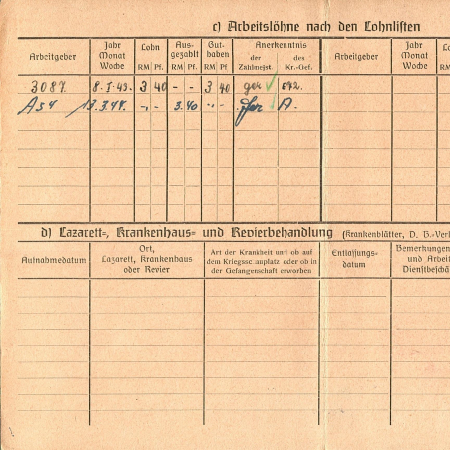 c) Arbeitslöhne nach den Lohnlisten
Arbeitgeber Jahr Monat Woche Lohn RM Pf. Ausgezahlt RM Pf. Guthaben RM Pf. Anerkenntnis der Zahlmeist. des Kr.-Gef. Arbeitgeber Jahr Monat Woche
3087. 8.I.43. 3 40 - - 3 40
13.3.44. -„- 3.40 „- A.
d) Lazarett-, Krankenhaus- und Revierbehandlung (Krankenblätter, D. B.-Verl
Aufnahmedatum Ort, Lazarett, Krankenhaus oder Revier Art der Krankheit und ob auf dem Kriegsschauplatz oder ob in der Gefangenschaft erworben Entlassungs-datum Bemerkungen und Arbeit Dienstbeschä